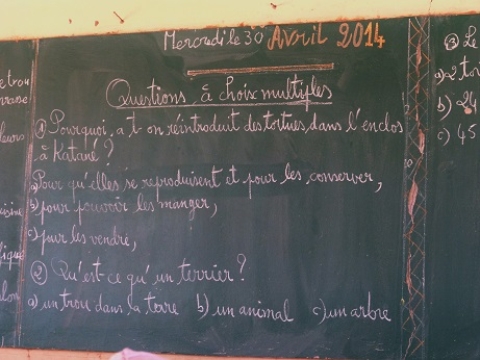 Mercredi le 30 Avril 2014
Questions à choix multiples
① Pourquoi, a t-on réintroduit des tortues, dans l'enclos
à Katané ?
a) Pour qu'elles se reproduisent et pour les conserver,
b) pour pouvoir les manger,
c) pour les vendre,
② Qu'est-ce qu'un terrier ?
a) un trou dans la terre b) un animal c) un arbre
③ Le
a) 2 tor
b) 24
c) 45